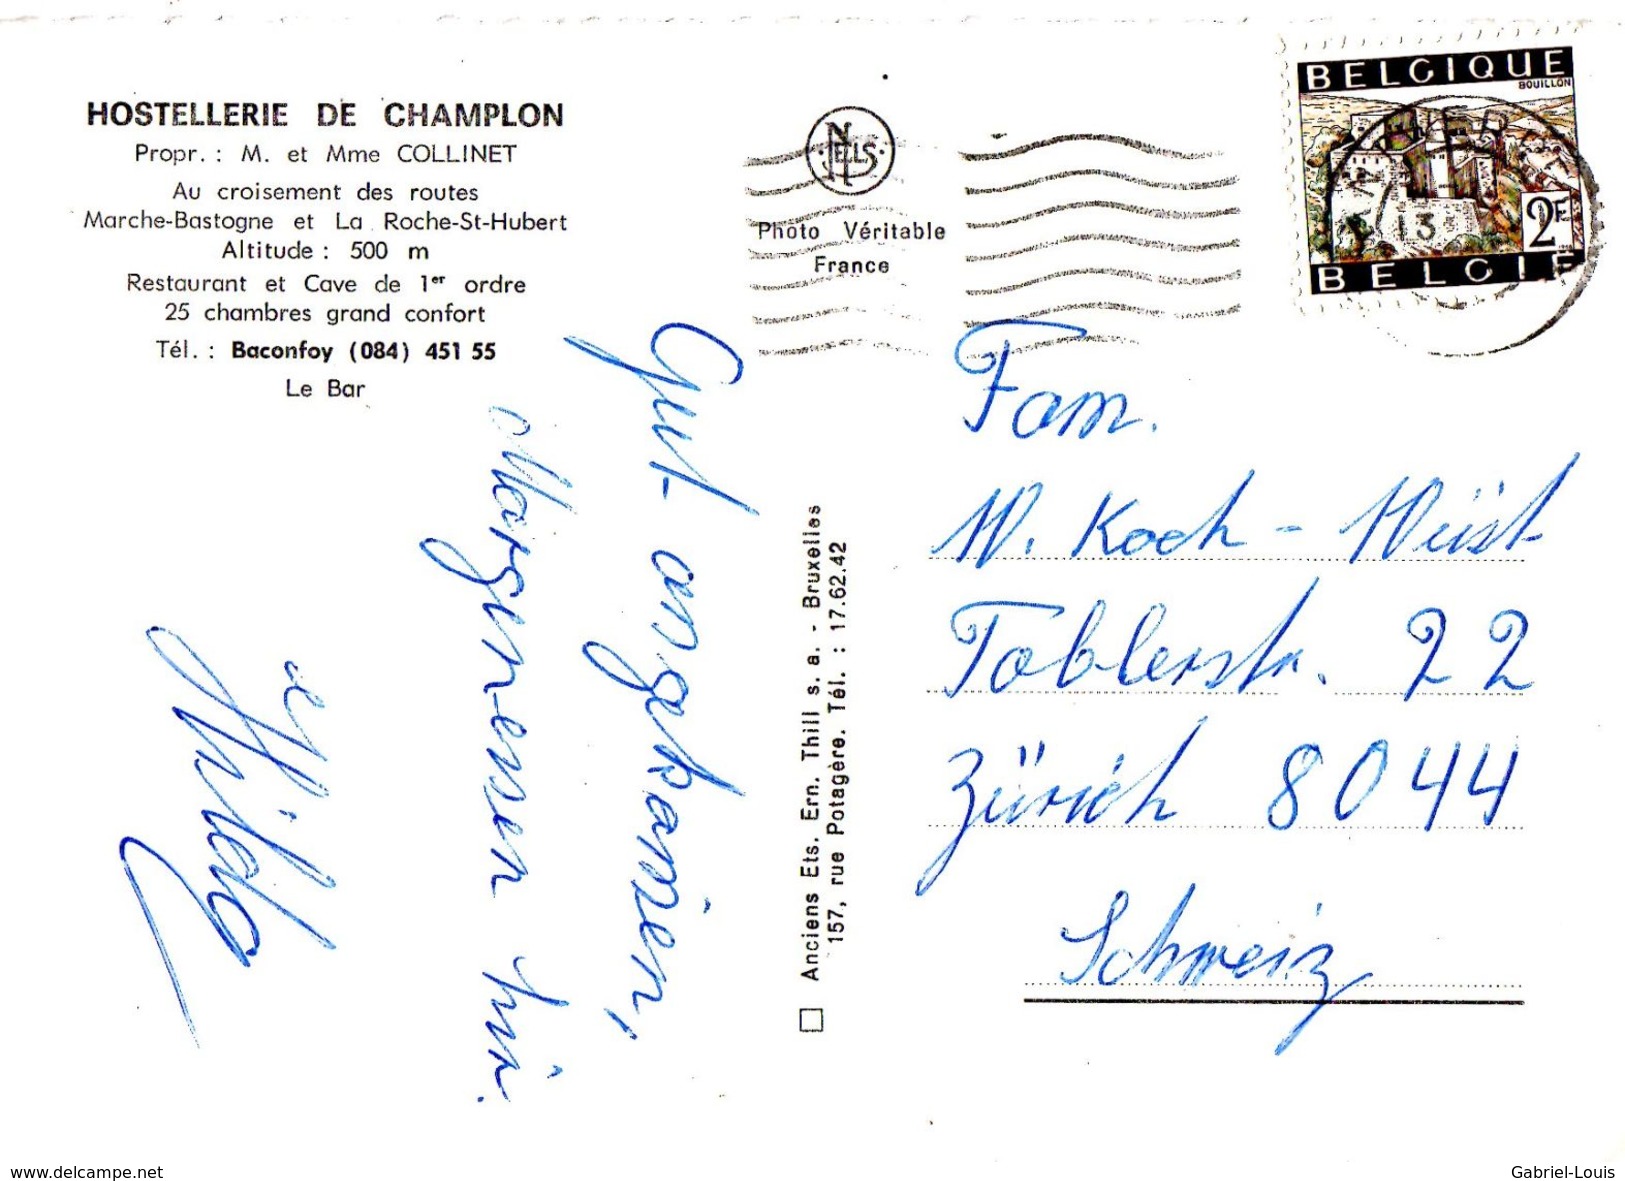 HOSTELLERIE DE CHAMPLON
Propr. : M. et Mme COLLINET
Au croisement des routes
Marche-Bastogne et La Roche-St-Hubert
Altitude : 500 m
Restaurant et Cave de 1er ordre
25 chambres grand confort
Tél. : Baconfoy (084) 451 55
Le Bar
NELS
Photo Véritable
France
BELGIQUE
BOUILLON
13
2F
BELGIE
Gut angekommen,
Morgenessen
Anciens Ets. Ern. Thill s. a. - Bruxelles
157, rue Potagère. Tél. : 17.62.42
Fam.
W. Koch - Wüst
Toblerstr. 22
Zürich 8044
Schweiz
www.delcampe.net
Gabriel-Louis